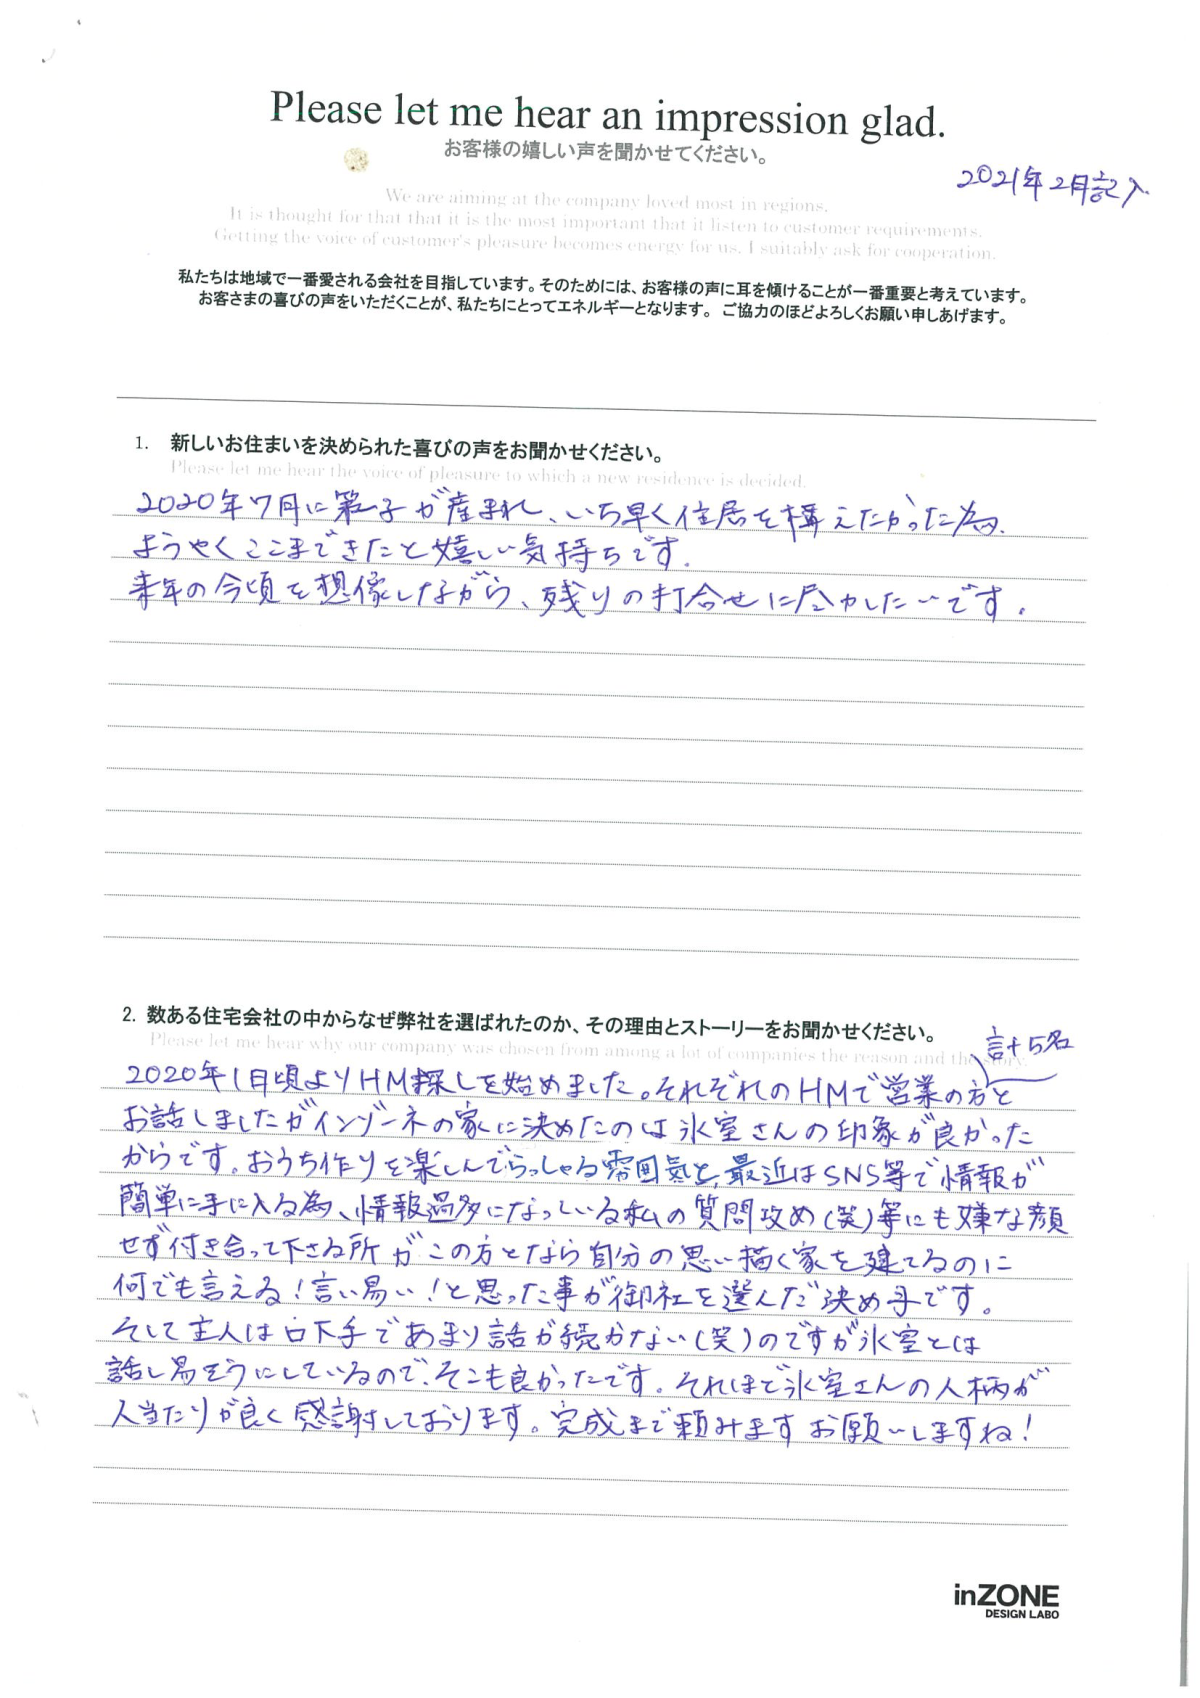 Please let me hear an impression glad.
お客様の嬉しい声を聞かせてください。
2021年2月記入
We are aiming at the company loved most in regions.
It is thought for that that it is the most important that it listen to customer requirements.
Getting the voice of customer's pleasure becomes energy for us. I suitably ask for cooperation.
私たちは地域で一番愛される会社を目指しています。そのためには、お客様の声に耳を傾けることが一番重要と考えています。
お客さまの喜びの声をいただくことが、私たちにとってエネルギーとなります。ご協力のほどよろしくお願い申しあげます。
1. 新しいお住まいを決められた喜びの声をお聞かせください。
Please let me hear the voice of pleasure to which a new residence is decided.
2020年7月に第一子が産まれ、いち早く住居を構えたかった為、
ようやくここまできたと嬉しい気持ちです。
来年の今頃を想像しながら、残りの打合せに尽力したいです。
2. 数ある住宅会社の中からなぜ弊社を選ばれたのか、その理由とストーリーをお聞かせください。
Please let me hear why our company was chosen from among a lot of companies the reason and the story.
計5名
2020年1月頃よりHM探しを始めました。それぞれのHMで営業の方と
お話しましたがインゾーネの家に決めたのは氷室さんの印象が良かった
からです。おうち作りを楽しんでらっしゃる雰囲気と、最近はSNS等で情報が
簡単に手に入る為、情報過多になっている私の質問攻め(笑)等にも嫌な顔
せず付き合って下さる所がこの方となら自分の思い描く家を建てるのに
何でも言える！言い易い！と思った事が御社を選んだ決め手です。
そして主人は口下手であまり話が続かない(笑)のですが氷室とは
話し易そうにしているので、そこも良かったです。それほど氷室さんの人柄が
人当たりが良く感謝しております。完成まで頼みますお願いしますね！
inZONE
DESIGN LABO